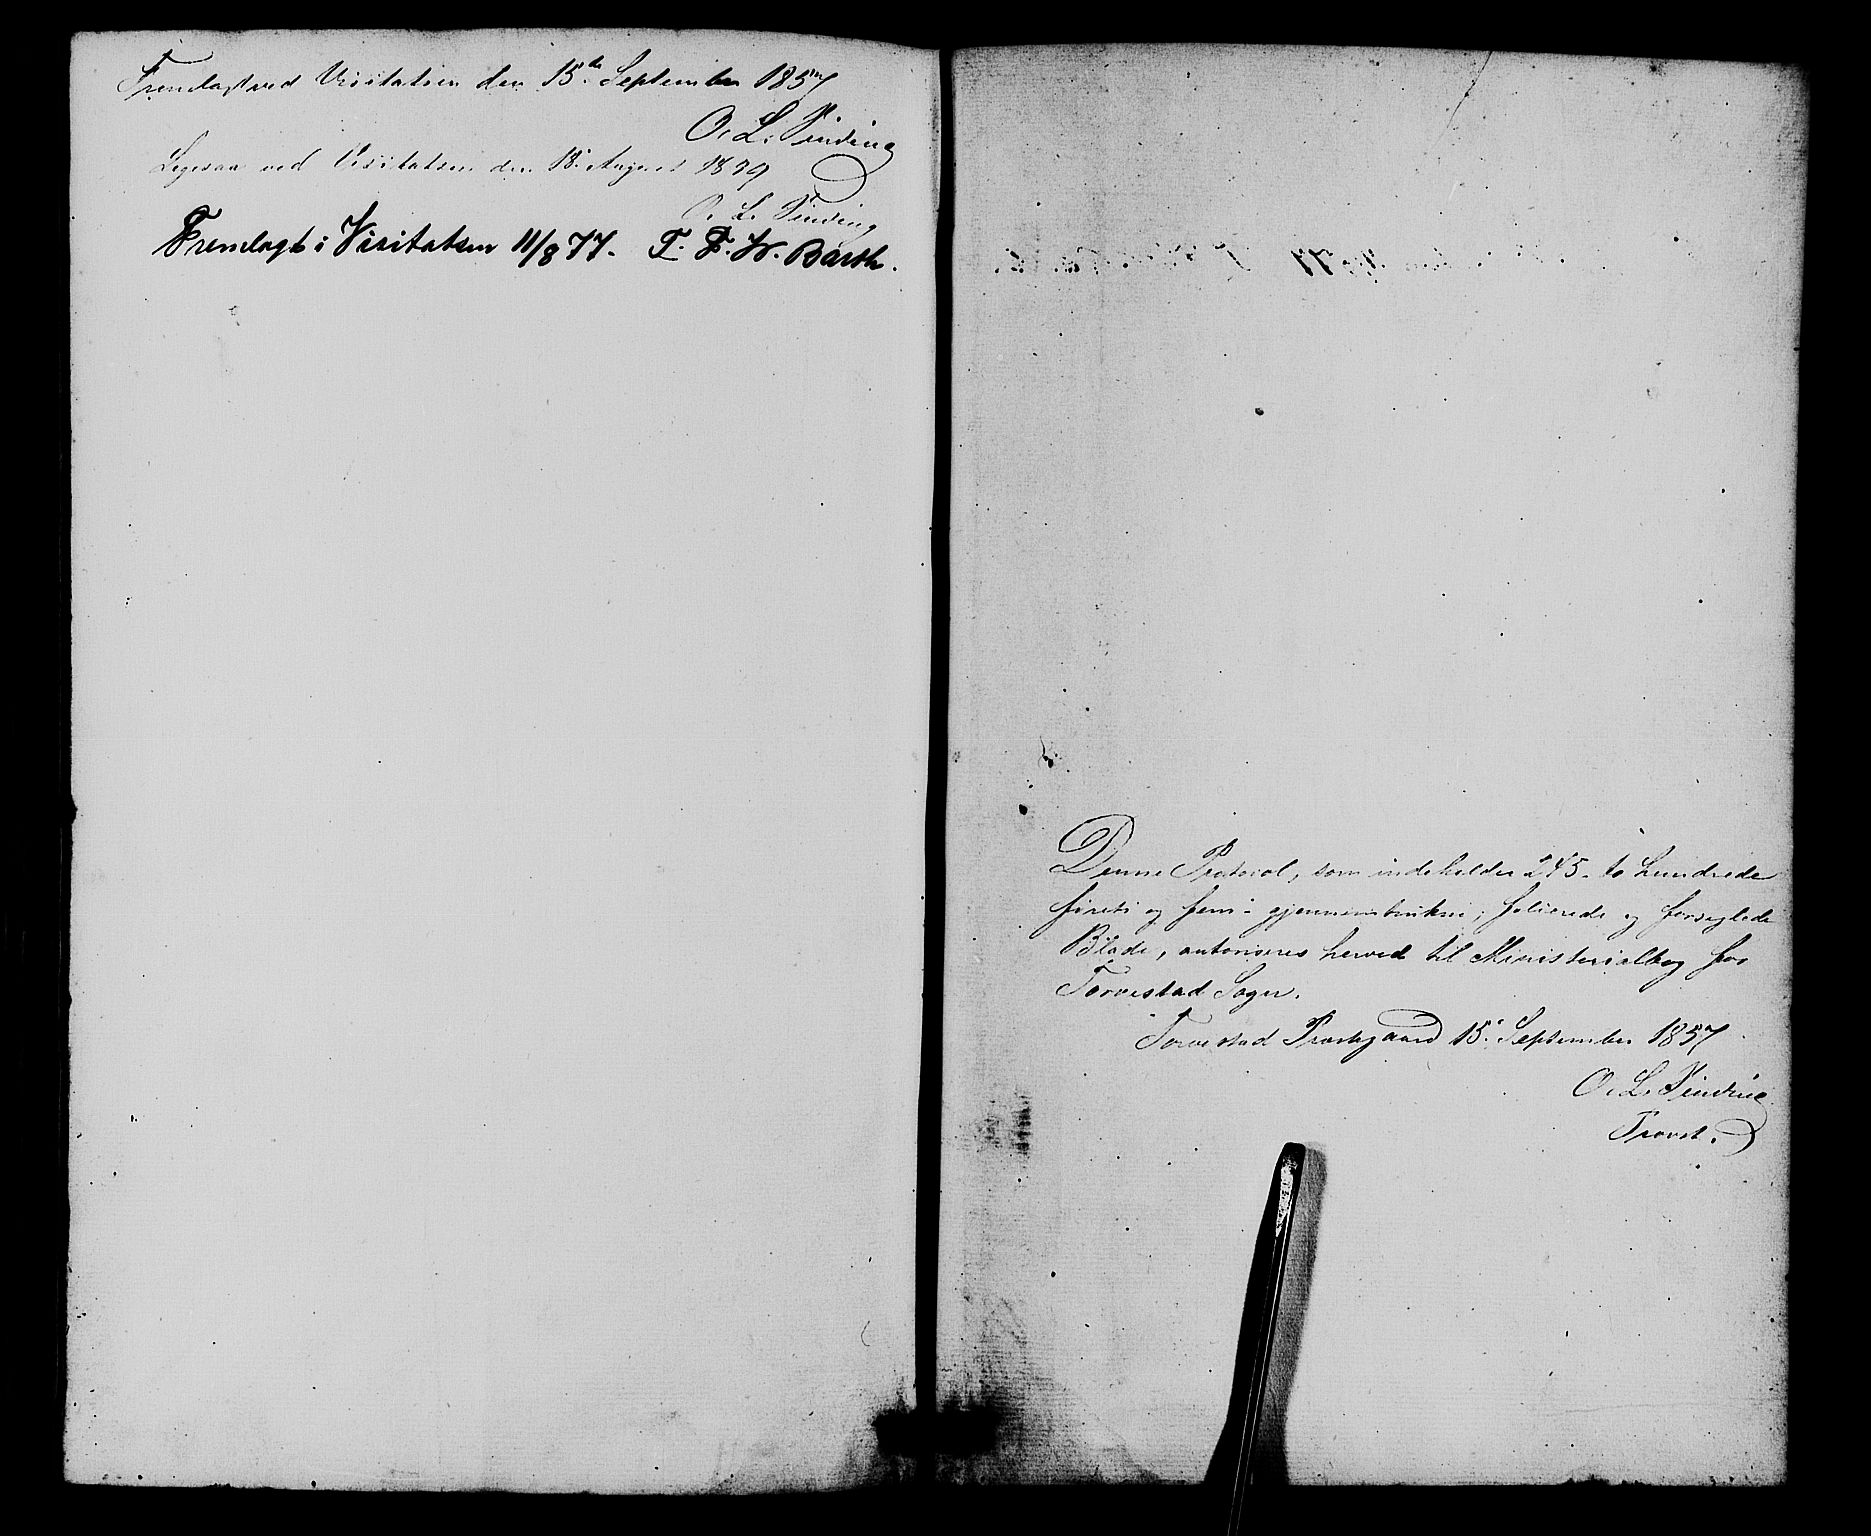 Fremlagt ved Visitatsen den 15de September 1857
O. L. Sinding
Ligesaa ved Visitatsen den 18. August 1859
O. L. Sinding
Fremlagt i Visitatsen 11/8 77. T. F. W. Barth.
Denne Protocol, som indeholder 245 - to hundrede
fireti og fem - gjennemtrukne, folierede og forseglede
Blade, autoriseres herved til Ministerialbog for
Torvestad Sogn.
Torvestad Præstegaard 15. September 1857
O. L. Sinding
Provst.